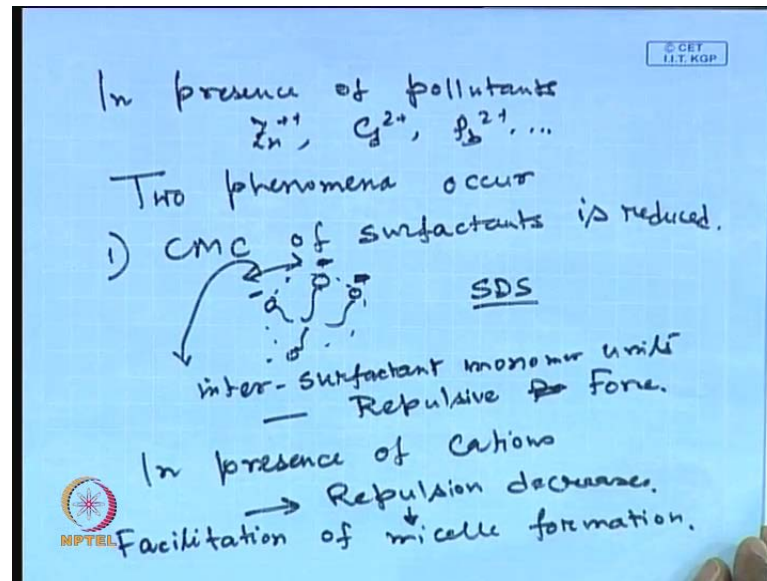 © CET
I.I.T. KGP
In presence of pollutants
Zn++, Cd2+, Pb2+, ...
Two phenomena occur
1) CMC of surfactants is reduced.
SDS
inter-surfactant monomer units
— Repulsive Force.
In presence of Cations
→ Repulsion decreases.
Facilitation of micelle formation.
NPTEL